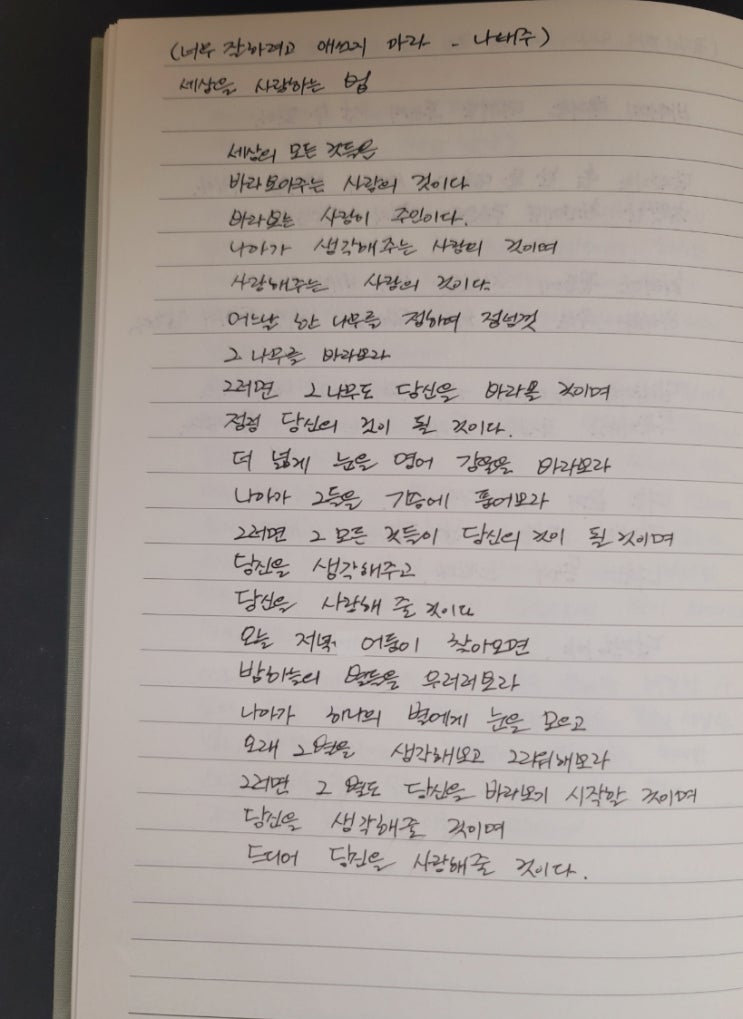 (너무 잘하려고 애쓰지 마라 - 나태주)
세상을 사랑하는 법
세상의 모든 것들은
바라보아주는 사람의 것이다
바라보는 사람이 주인이다.
나아가 생각해주는 사람의 것이며
사랑해주는 사람의 것이다.
어느날 한 나무를 정하여 정성껏
그 나무를 바라보라
그러면 그 나무도 당신을 바라볼 것이며
점점 당신의 것이 될 것이다.
더 넓게 눈을 열어 강물을 바라보라
나아가 그들을 가슴에 품어보라
그러면 그 모든 것들이 당신의 것이 될 것이며
당신을 생각해주고
당신을 사랑해 줄 것이다
오늘 저녁 어둠이 찾아오면
밤하늘의 별들을 우러러보라
나아가 하나의 별에게 눈을 모으고
오래 그 별을 생각해보고 그리워해보라
그러면 그 별도 당신을 바라보기 시작할 것이며
당신을 생각해줄 것이며
드디어 당신을 사랑해줄 것이다.